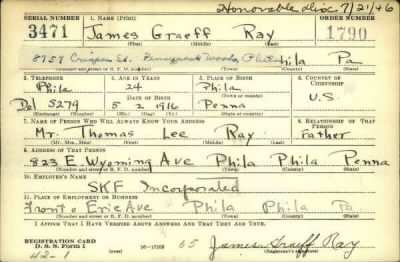 Honorable disc 7/21/46
SERIAL NUMBER 1. NAME (Print) ORDER NUMBER
3471 James Graeff Ray 1790
(First) (Middle) (Last)
8757 Crispin St. Pennypack Woods, Phila Phila Pa
2. TELEPHONE 3. AGE IN YEARS 4. PLACE OF BIRTH 5. COUNTRY OF CITIZENSHIP
Phila 24 Phila
DATE OF BIRTH (Town or county) U.S.
Del 5279 5 2 1916 Penna
(Mo.) (Day) (Yr.) (State or country)
7. NAME OF PERSON WHO WILL ALWAYS KNOW YOUR ADDRESS 8. RELATIONSHIP OF THAT PERSON
Mr. Thomas Lee Ray Father
(Mr., Mrs., Miss) (First) (Middle) (Last)
9. ADDRESS OF THAT PERSON
823 E. Wyoming Ave Phila Phila Penna
(Number and street or R. F. D. number) (Town) (County) (State)
10. EMPLOYER'S NAME
SKF Incorporated
11. PLACE OF EMPLOYMENT OR BUSINESS
Front & Erie Ave Phila Phila Pa
(Number and street or R. F. D. number) (Town) (County) (State)
I AFFIRM THAT I HAVE VERIFIED ABOVE ANSWERS AND THAT THEY ARE TRUE.
REGISTRATION CARD
D. S. S. Form 1 16—17105 65 James Graeff Ray
42-1 (Registrant's signature)